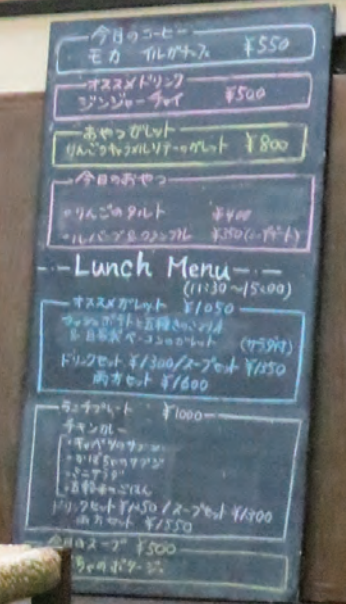 今日のコーヒー
モカ イルガチェフェ ¥550
オススメドリンク
ジンジャーチャイ ¥500
おやつガレット
りんごのキャラメルソテーのガレット ¥800
今日のおやつ
・りんごのタルト ¥400
・ルバーブ&クランブル ¥350
Lunch Menu
(11:30〜15:00)
オススメガレット ¥1050
マッシュポテトと五種きのこソテー
& 自家製ベーコンのガレット (サラダ付)
ドリンクセット ¥1300/スープセット ¥1350
両方セット ¥1600
ランチプレート ¥1000
チキンカレー
・キャベツのサブジ
・かぼちゃのサブジ
・ミニサラダ
・五穀米のごはん
ドリンクセット ¥1250/スープセット ¥1300
両方セット ¥1550
今日のスープ ¥500
ちゃのポタージュ